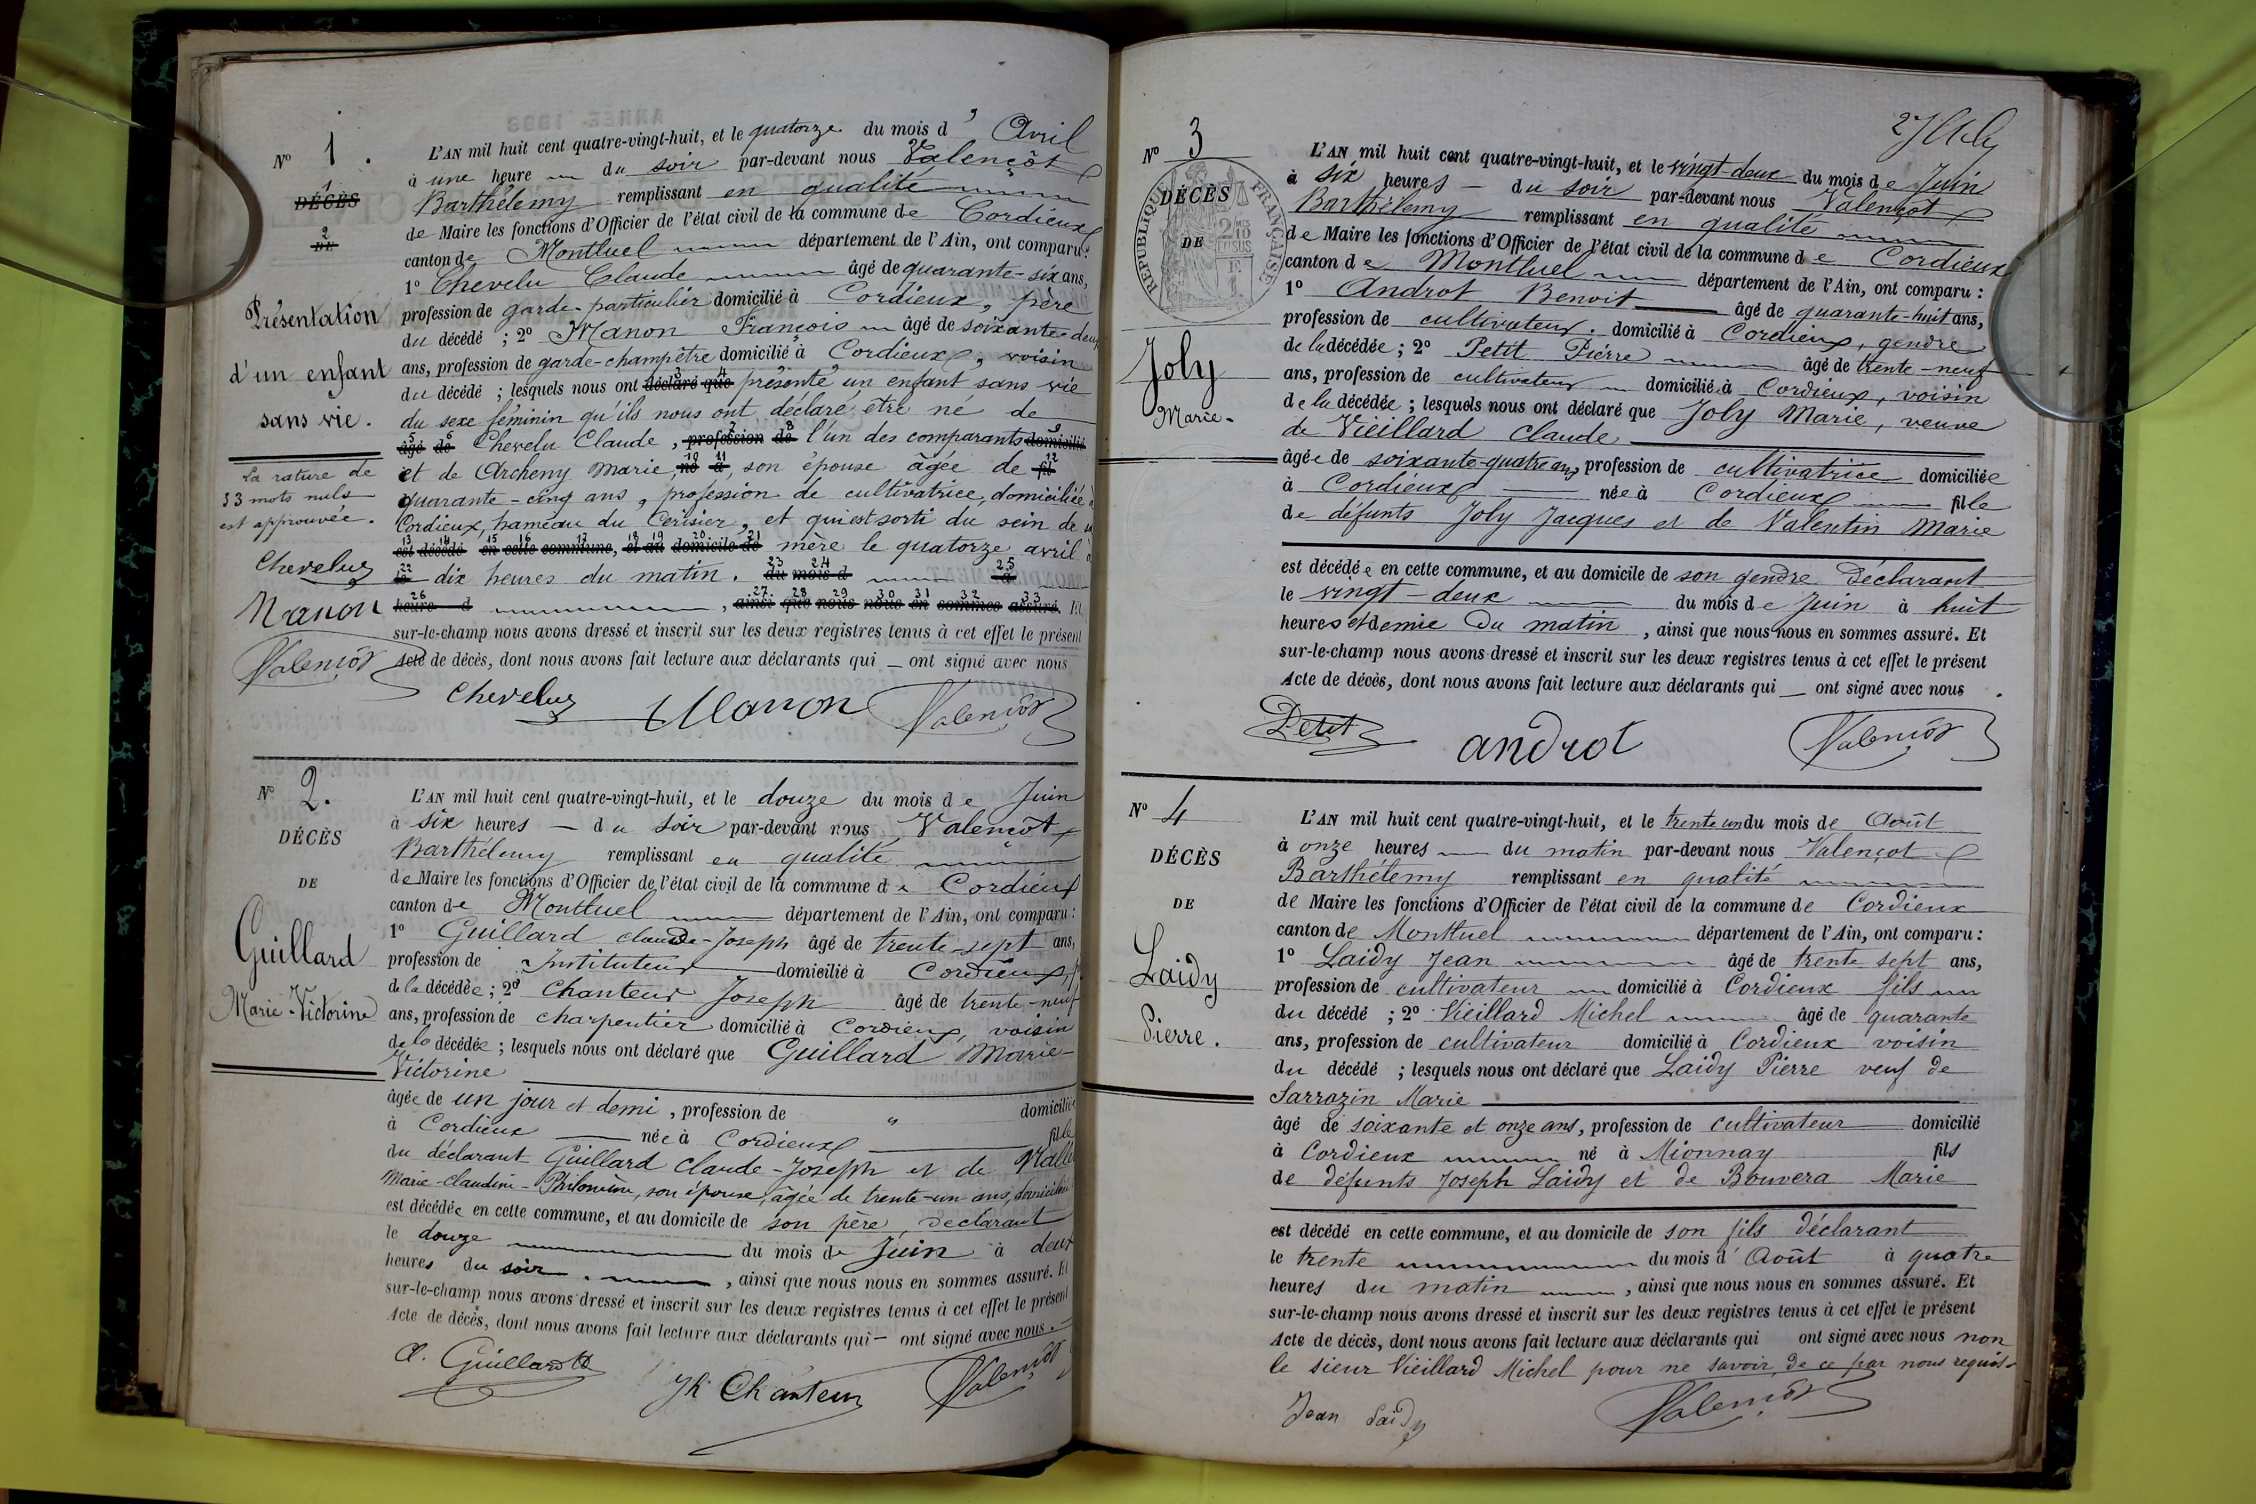 N° 1.
DÉCÈS
DE
Présentation
d'un enfant
sans vie.
La rature de
33 mots nuls
est approuvée.
Chevelu
Manon
Valençot
L'AN mil huit cent quatre-vingt-huit, et le quatorze du mois d' Avril
à une heure du soir par-devant nous Valençot
Barthélemy remplissant en qualité
de Maire les fonctions d'Officier de l'état civil de la commune de Cordieux
canton de Montluel département de l'Ain, ont comparu :
1° Chevelu Claude âgé de quarante-six ans,
profession de garde-particulier domicilié à Cordieux, père
du décédé ; 2° Manon François âgé de soixante-deux
ans, profession de garde-champêtre domicilié à Cordieux, voisin
du décédé ; lesquels nous ont déclaré que présenté un enfant sans vie
du sexe féminin qu'ils nous ont déclaré être né de
âgé de Chevelu Claude, profession de l'un des comparants domicilié
et de Archeny Marie, né à, son épouse âgée de fil
quarante-cinq ans, profession de cultivatrice, domiciliée à
Cordieux, hameau du Cerisier, et qui est sorti du sein de sa
est décédé en cette commune, et au domicile de mère le quatorze avril à
le dix heures du matin. du mois d à
heure d , ainsi que nous nous en sommes assuré. Et
sur-le-champ nous avons dressé et inscrit sur les deux registres tenus à cet effet le présent
Acte de décès, dont nous avons fait lecture aux déclarants qui — ont signé avec nous
Chevelu Manon Valençot
N° 2.
DÉCÈS
DE
Guillard
Marie-Victorine
L'AN mil huit cent quatre-vingt-huit, et le douze du mois de Juin
à six heures — du soir par-devant nous Valençot
Barthélemy remplissant en qualité
de Maire les fonctions d'Officier de l'état civil de la commune de Cordieux
canton de Montluel département de l'Ain, ont comparu :
1° Guillard Claude-Joseph âgé de trente-sept ans,
profession de Instituteur domicilié à Cordieux,
de la décédée ; 2° Chanteur Joseph âgé de trente-neuf
ans, profession de charpentier domicilié à Cordieux, voisin
de la décédée ; lesquels nous ont déclaré que Guillard Marie-
Victorine
âgée de un jour et demi, profession de " domiciliée
à Cordieux née à Cordieux fille
du déclarant Guillard Claude-Joseph et de
Marie-Claudine-Philomène, son épouse, âgée de trente-un ans, domiciliée
est décédée en cette commune, et au domicile de son père, déclarant
le douze du mois de Juin à deux
heures du soir. , ainsi que nous nous en sommes assuré. Et
sur-le-champ nous avons dressé et inscrit sur les deux registres tenus à cet effet le présent
Acte de décès, dont nous avons fait lecture aux déclarants qui — ont signé avec nous.
Cl. Guillard Jh Chanteur Valençot
N° 3
DÉCÈS
DE
RÉPUBLIQUE FRANÇAISE
Joly
Marie.
L'AN mil huit cent quatre-vingt-huit, et le vingt-deux du mois de Juin
à six heures — du soir par-devant nous Valençot
Barthélemy remplissant en qualité
de Maire les fonctions d'Officier de l'état civil de la commune de Cordieux
canton de Montluel département de l'Ain, ont comparu :
1° Androt Benoit âgé de quarante-huit ans,
profession de cultivateur. domicilié à Cordieux, gendre
de la décédée ; 2° Petit Pierre âgé de trente-neuf
ans, profession de cultivateur domicilié à Cordieux, voisin
de la décédée ; lesquels nous ont déclaré que Joly Marie, veuve
de Vieillard Claude
âgée de soixante-quatre ans, profession de cultivatrice domiciliée
à Cordieux née à Cordieux fille
de défunts Joly Jacques et de Valentin Marie
est décédée en cette commune, et au domicile de son gendre Déclarant
le vingt-deux du mois de Juin à huit
heures et demie du matin, ainsi que nous nous en sommes assuré. Et
sur-le-champ nous avons dressé et inscrit sur les deux registres tenus à cet effet le présent
Acte de décès, dont nous avons fait lecture aux déclarants qui — ont signé avec nous.
Petit androt Valençot
N° 4
DÉCÈS
DE
Laidy
Pierre.
L'AN mil huit cent quatre-vingt-huit, et le trente un du mois de Août
à onze heures — du matin par-devant nous Valençot
Barthélemy remplissant en qualité
de Maire les fonctions d'Officier de l'état civil de la commune de Cordieux
canton de Montluel département de l'Ain, ont comparu :
1° Laidy Jean âgé de trente sept ans,
profession de cultivateur domicilié à Cordieux fils
du décédé ; 2° Vieillard Michel âgé de quarante
ans, profession de cultivateur domicilié à Cordieux voisin
du décédé ; lesquels nous ont déclaré que Laidy Pierre veuf de
Sarrazin Marie
âgé de soixante et onze ans, profession de cultivateur domicilié
à Cordieux né à Mionnay fils
de défunts Joseph Laidy et de Bouvera Marie
est décédé en cette commune, et au domicile de son fils déclarant
le trente du mois d'Août à quatre
heures du matin , ainsi que nous nous en sommes assuré. Et
sur-le-champ nous avons dressé et inscrit sur les deux registres tenus à cet effet le présent
Acte de décès, dont nous avons fait lecture aux déclarants qui ont signé avec nous non
le sieur Vieillard Michel pour ne savoir, de ce par nous requis.
Jean Laidy Valençot